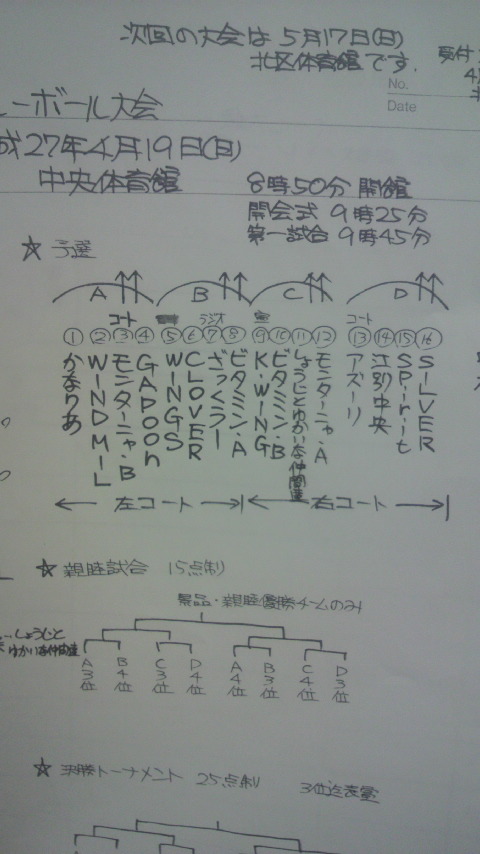 次回の大会は5月17日(日)
北区体育館です.
受付
No.
Date
ーボール大会
成27年4月19日(日)
中央体育館
8時50分 開館
開会式 9時25分
第一試合 9時45分
☆ 予選
A B C D
コート ラジオ コート
① ② ③ ④ ⑤ ⑥ ⑦ ⑧ ⑨ ⑩ ⑪ ⑫ ⑬ ⑭ ⑮ ⑯
かなりあ
WINDMIL
モンターニャ・B
GAPOON
WINGS
CLOVER
ざっくらー
ビタミン・A
K・WING
ビタミン・B
しょうじとゆかいな仲間達
モンターニャ・A
アズーリ
江別中央
Spirit
SILVER
← 左コート → ← 右コート →
☆ 親睦試合 15点制
景品・親睦優勝チームのみ
しょうじと
ゆかいな仲間達
A3位 B4位 C3位 D4位 A4位 B3位 C4位 D3位
☆ 決勝トーナメント 25点制 3位迄表彰